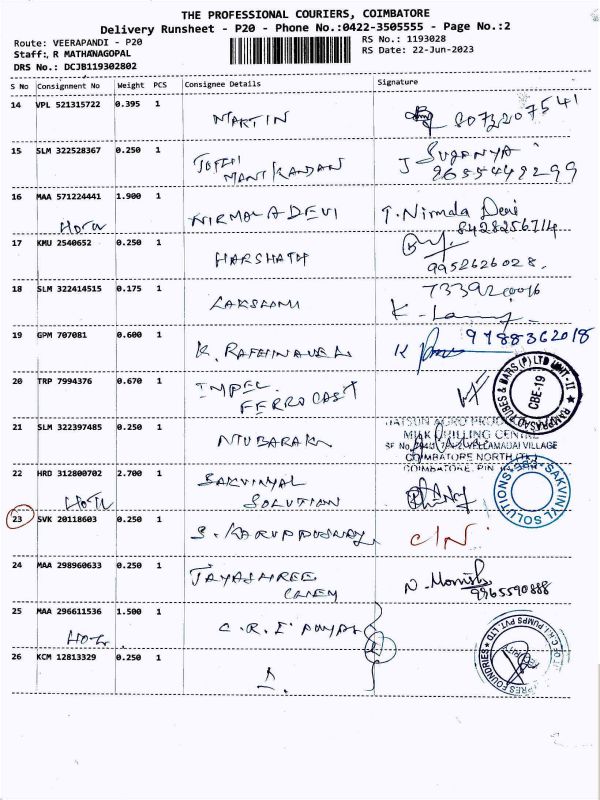 THE PROFESSIONAL COURIERS, COIMBATORE
Delivery Runsheet - P20 - Phone No.:0422-3505555 - Page No.:2
Route: VEERAPANDI - P20
RS No.: 1193028
Staff: R MATHANAGOPAL
RS Date: 22-Jun-2023
DRS No.: DCJB119302802
S No Consignment No Weight PCS Consignee Details Signature
14 VPL 521315722 0.395 1 MARTIN 8073207541
15 SLM 322528367 0.250 1 MANIKANDAN J Suganya
9655449299
16 MAA 571224441 1.900 1 NIRMALA DEVI T. Nirmala Devi
8428256714
17 KMU 2540652 0.250 1 HARSHATH
9952626028.
18 SLM 322414515 0.175 1 LAKSHMI K.
19 GPM 707081 0.600 1 K. K 9788362018
20 TRP 7994376 0.670 1 IMPEL
FERRO CAST
RAMPRASAD TUBES & BARS (P) LTD UNIT-II
CBE-19
21 SLM 322397485 0.250 1 MUBARAK
MILK CHILLING CENTRE
VILLAGE
COIMBATORE NORTH
COIMBATORE. PIN
22 HRD 312800702 2.700 1 SAKVINYAL
SOLUTION
SAKVINYL SOLUTIONS
23 SVK 20118603 0.250 1 S. KARUPPUSAMY C/N
24 MAA 298960633 0.250 1 JAYASHREE
N.
9965590888
25 MAA 296611536 1.500 1 C.R.I PUMPS
C.R.I. PUMPS PVT. LTD
FOUNDRIES
26 KCM 12813329 0.250 1